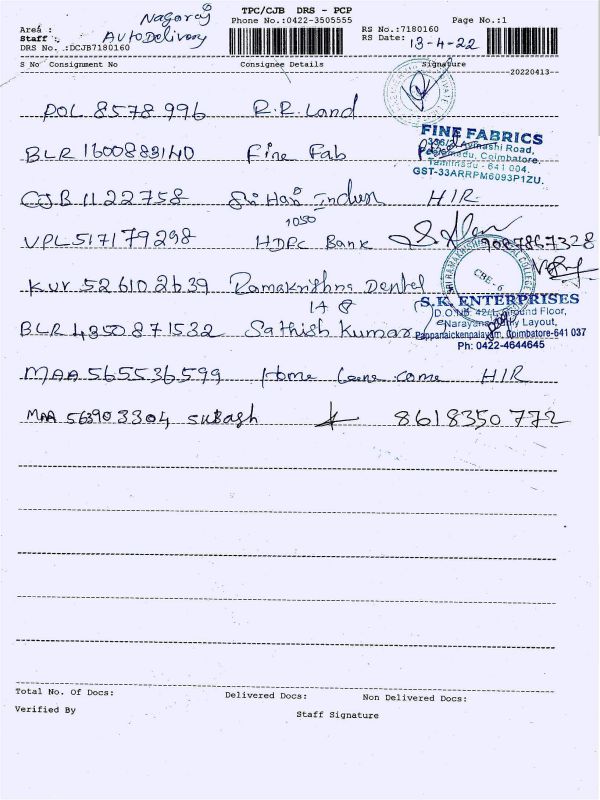 Nagaraj TPC/CJB DRS - PCP
Area : Phone No.:0422-3505555 Page No.:1
Staff : Auto Delivery RS No.:7180160
DRS No. :DCJB7180160 RS Date: 13-4-22
S No Consignment No Consignee Details Signature
20220413
POL 8578 996 R.R. Land
FINE FABRICS
Avinashi Road,
BLR 1600883140 Fine Fab Coimbatore,
Tamilnadu - 641 004.
GST-33ARRPM6093P1ZU.
CJB 1122758 Sri Hari HIR
1050
VPL 517179298 HDFC Bank 9087867328
CBE - 6
KUR 526102639 Ramakrithna Dentel
S.K. ENTERPRISES
14 8
D.O.No. Ground Floor,
BLR 4350871532 Sathish Kumar Layout,
Pappanaickenpalayam, Coimbatore-641 037
Ph: 0422-4644645
MAA 565536599 Home come HIR
MAA 563903304 Subash 8618350772
Total No. Of Docs: Delivered Docs: Non Delivered Docs:
Verified By Staff Signature